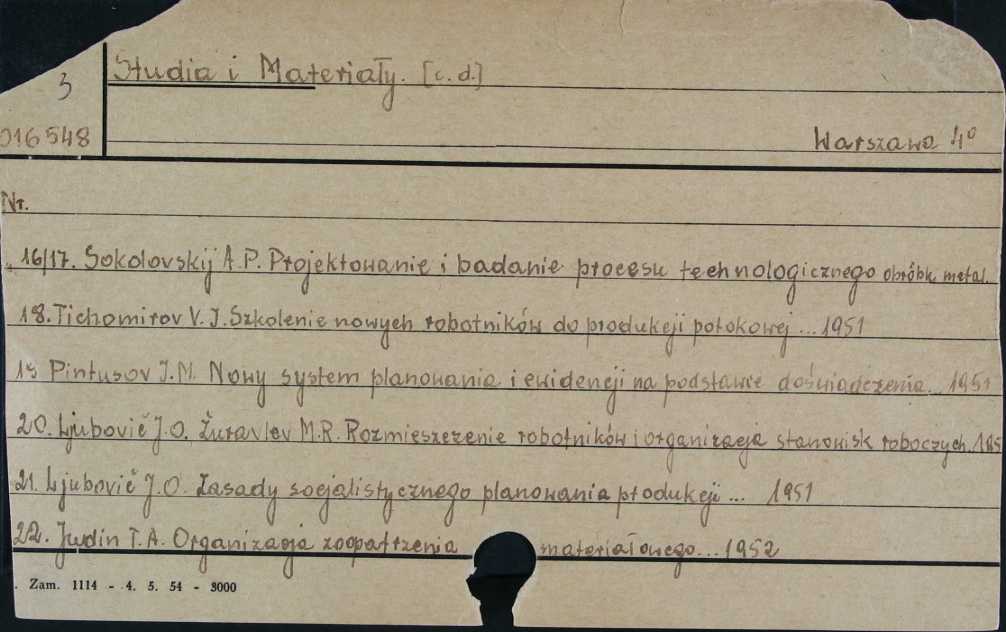 Studia i Materiały. [c. d.]
3
016548
Warszawa 4°
Nr.
16/17. Sokolovskij A.P. Projektowanie i badanie procesu technologicznego obróbk. metal.
18. Tichomirov V. J. Szkolenie nowych robotników do produkcji potokowej ... 1951
19 Pintusov J.M. Nowy system planowania i ewidencji na podstawie doświadczenia... 1951
20. Ljubovič J.O. Žuravlev M.R. Rozmieszczenie robotników i organizacja stanowisk roboczych. 195
21. Ljubovič J.O. Zasady socjalistycznego planowania produkcji ... 1951
22. Judin T.A. Organizacja zaopatrzenia materiałowego... 1952
Zam. 1114 - 4. 5. 54 - 3000